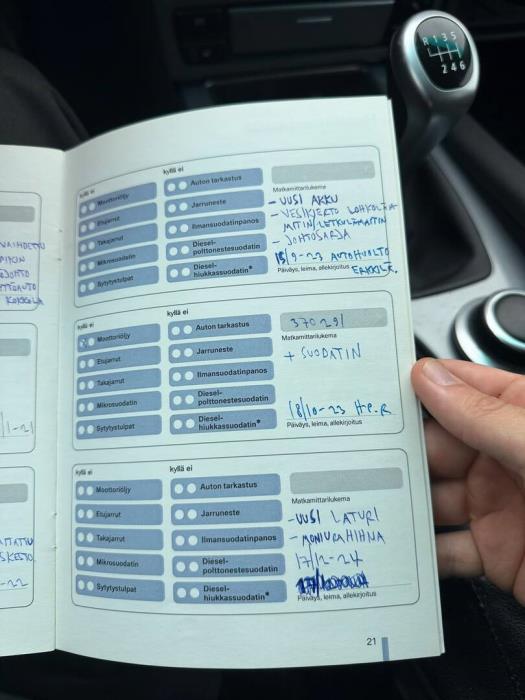 R 1 3 5
2 4 6
VAIHDETTU
KOKKOLA
/1-21
-22
kyllä ei
kyllä ei
Moottoriöljy
Etujarrut
Takajarrut
Mikrosuodatin
Sytytystulpat
Auton tarkastus
Jarruneste
Ilmansuodatinpanos
Diesel-
polttonestesuodatin
Diesel-
hiukkassuodatin*
Matkamittarilukema
- UUSI AKKU
- VESIKIERTO LOHKOLÄM
MITIN/LETKULÄMMITIN
- JOHTOSARJA
15/9-23 AUTOHUOLTO
Päiväys, leima, allekirjoitus
kyllä ei
kyllä ei
Moottoriöljy
Etujarrut
Takajarrut
Mikrosuodatin
Sytytystulpat
Auton tarkastus
Jarruneste
Ilmansuodatinpanos
Diesel-
polttonestesuodatin
Diesel-
hiukkassuodatin*
370291
Matkamittarilukema
+ SUODATIN
18/10-23 HP.R
Päiväys, leima, allekirjoitus
kyllä ei
kyllä ei
Moottoriöljy
Etujarrut
Takajarrut
Mikrosuodatin
Sytytystulpat
Auton tarkastus
Jarruneste
Ilmansuodatinpanos
Diesel-
polttonestesuodatin
Diesel-
hiukkassuodatin*
Matkamittarilukema
- UUSI LATURI
- MONIURAHIHNA
17/12-24
Päiväys, leima, allekirjoitus
21